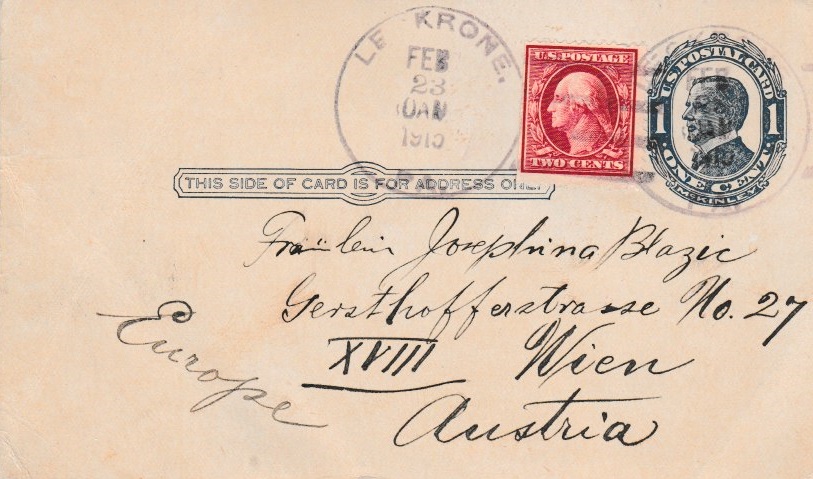 LE KRONE,
FEB
23
1915
PA.
U.S. POSTAGE
TWO CENTS
U.S. POSTAL CARD
1 1
ONE CENT.
McKINLEY
FEB
PA
THIS SIDE OF CARD IS FOR ADDRESS ONLY.
Fräulein Josephina Blazic
Gersthofferstrasse No. 27
XVIII Wien
Austria
Europe